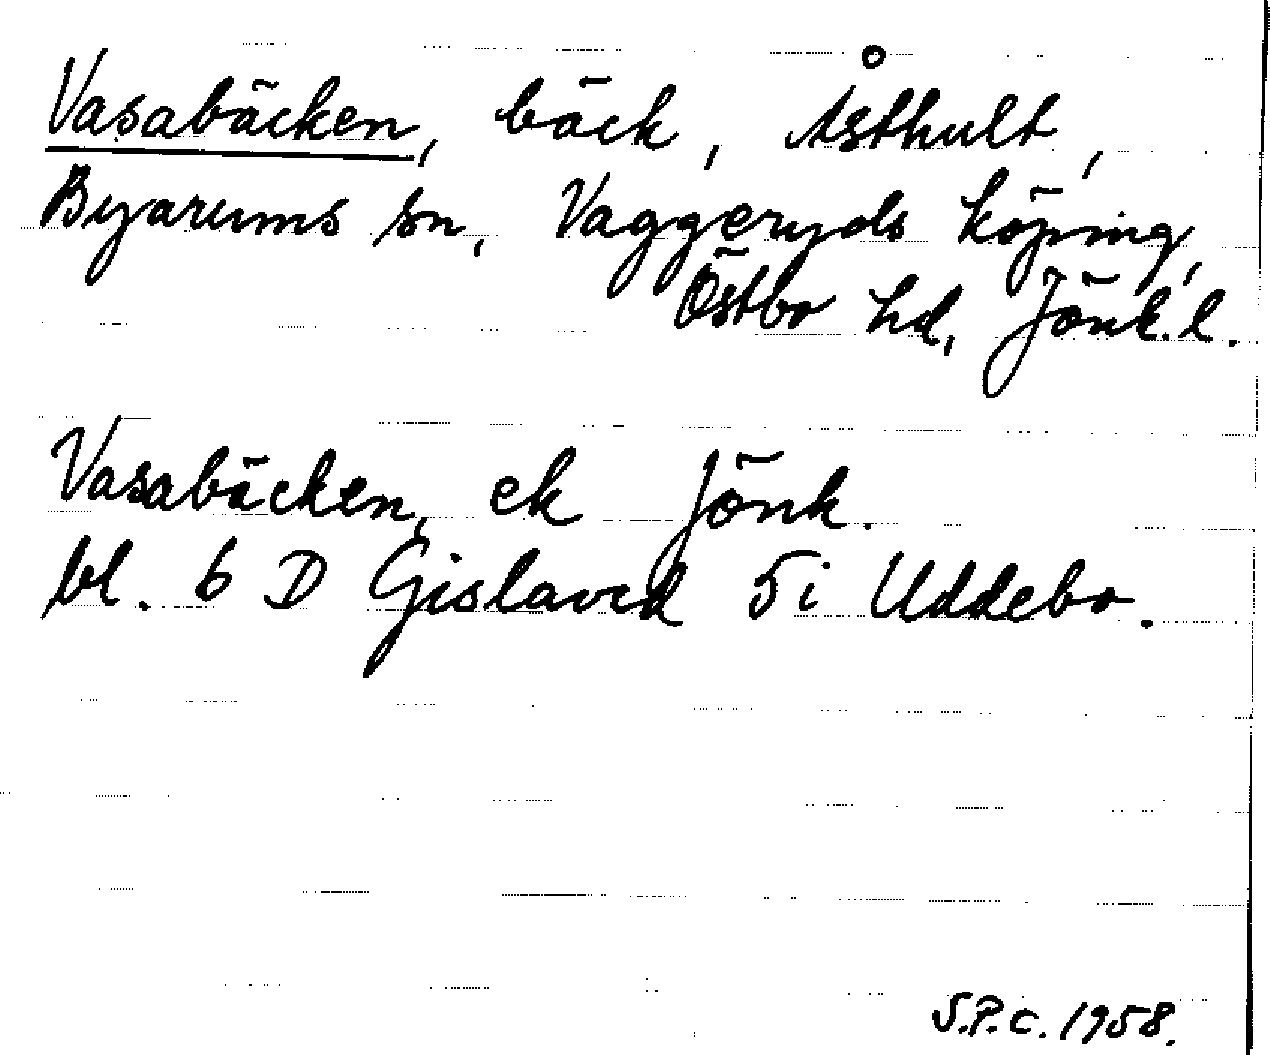 Vasabäcken, bäck, Åsthult,
Byarums sn, Vaggeryds köping,
Östbo hd, Jönk. l.
Vasabäcken, ek Jönk.
bl. 6 D Gislaved 5i Uddebo.
S.P.C. 1958.